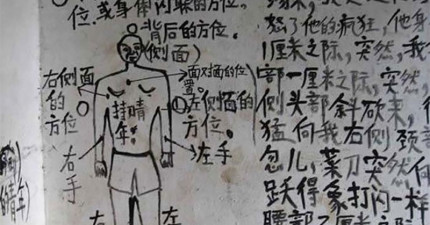 位,或身侧闪躲的方位。
背后的方位。
(侧面)
右侧面的方位
面对面的位置。
左侧面的方位。
右手
左手
右
左
的青年)
怒了他的疯狂,他身
1厘米之际,突然,我
部一厘米之际,突然,
侧头部斜砍来,
猛向我右侧颈
忽儿,菜刀突然何
跃得象打闪一样